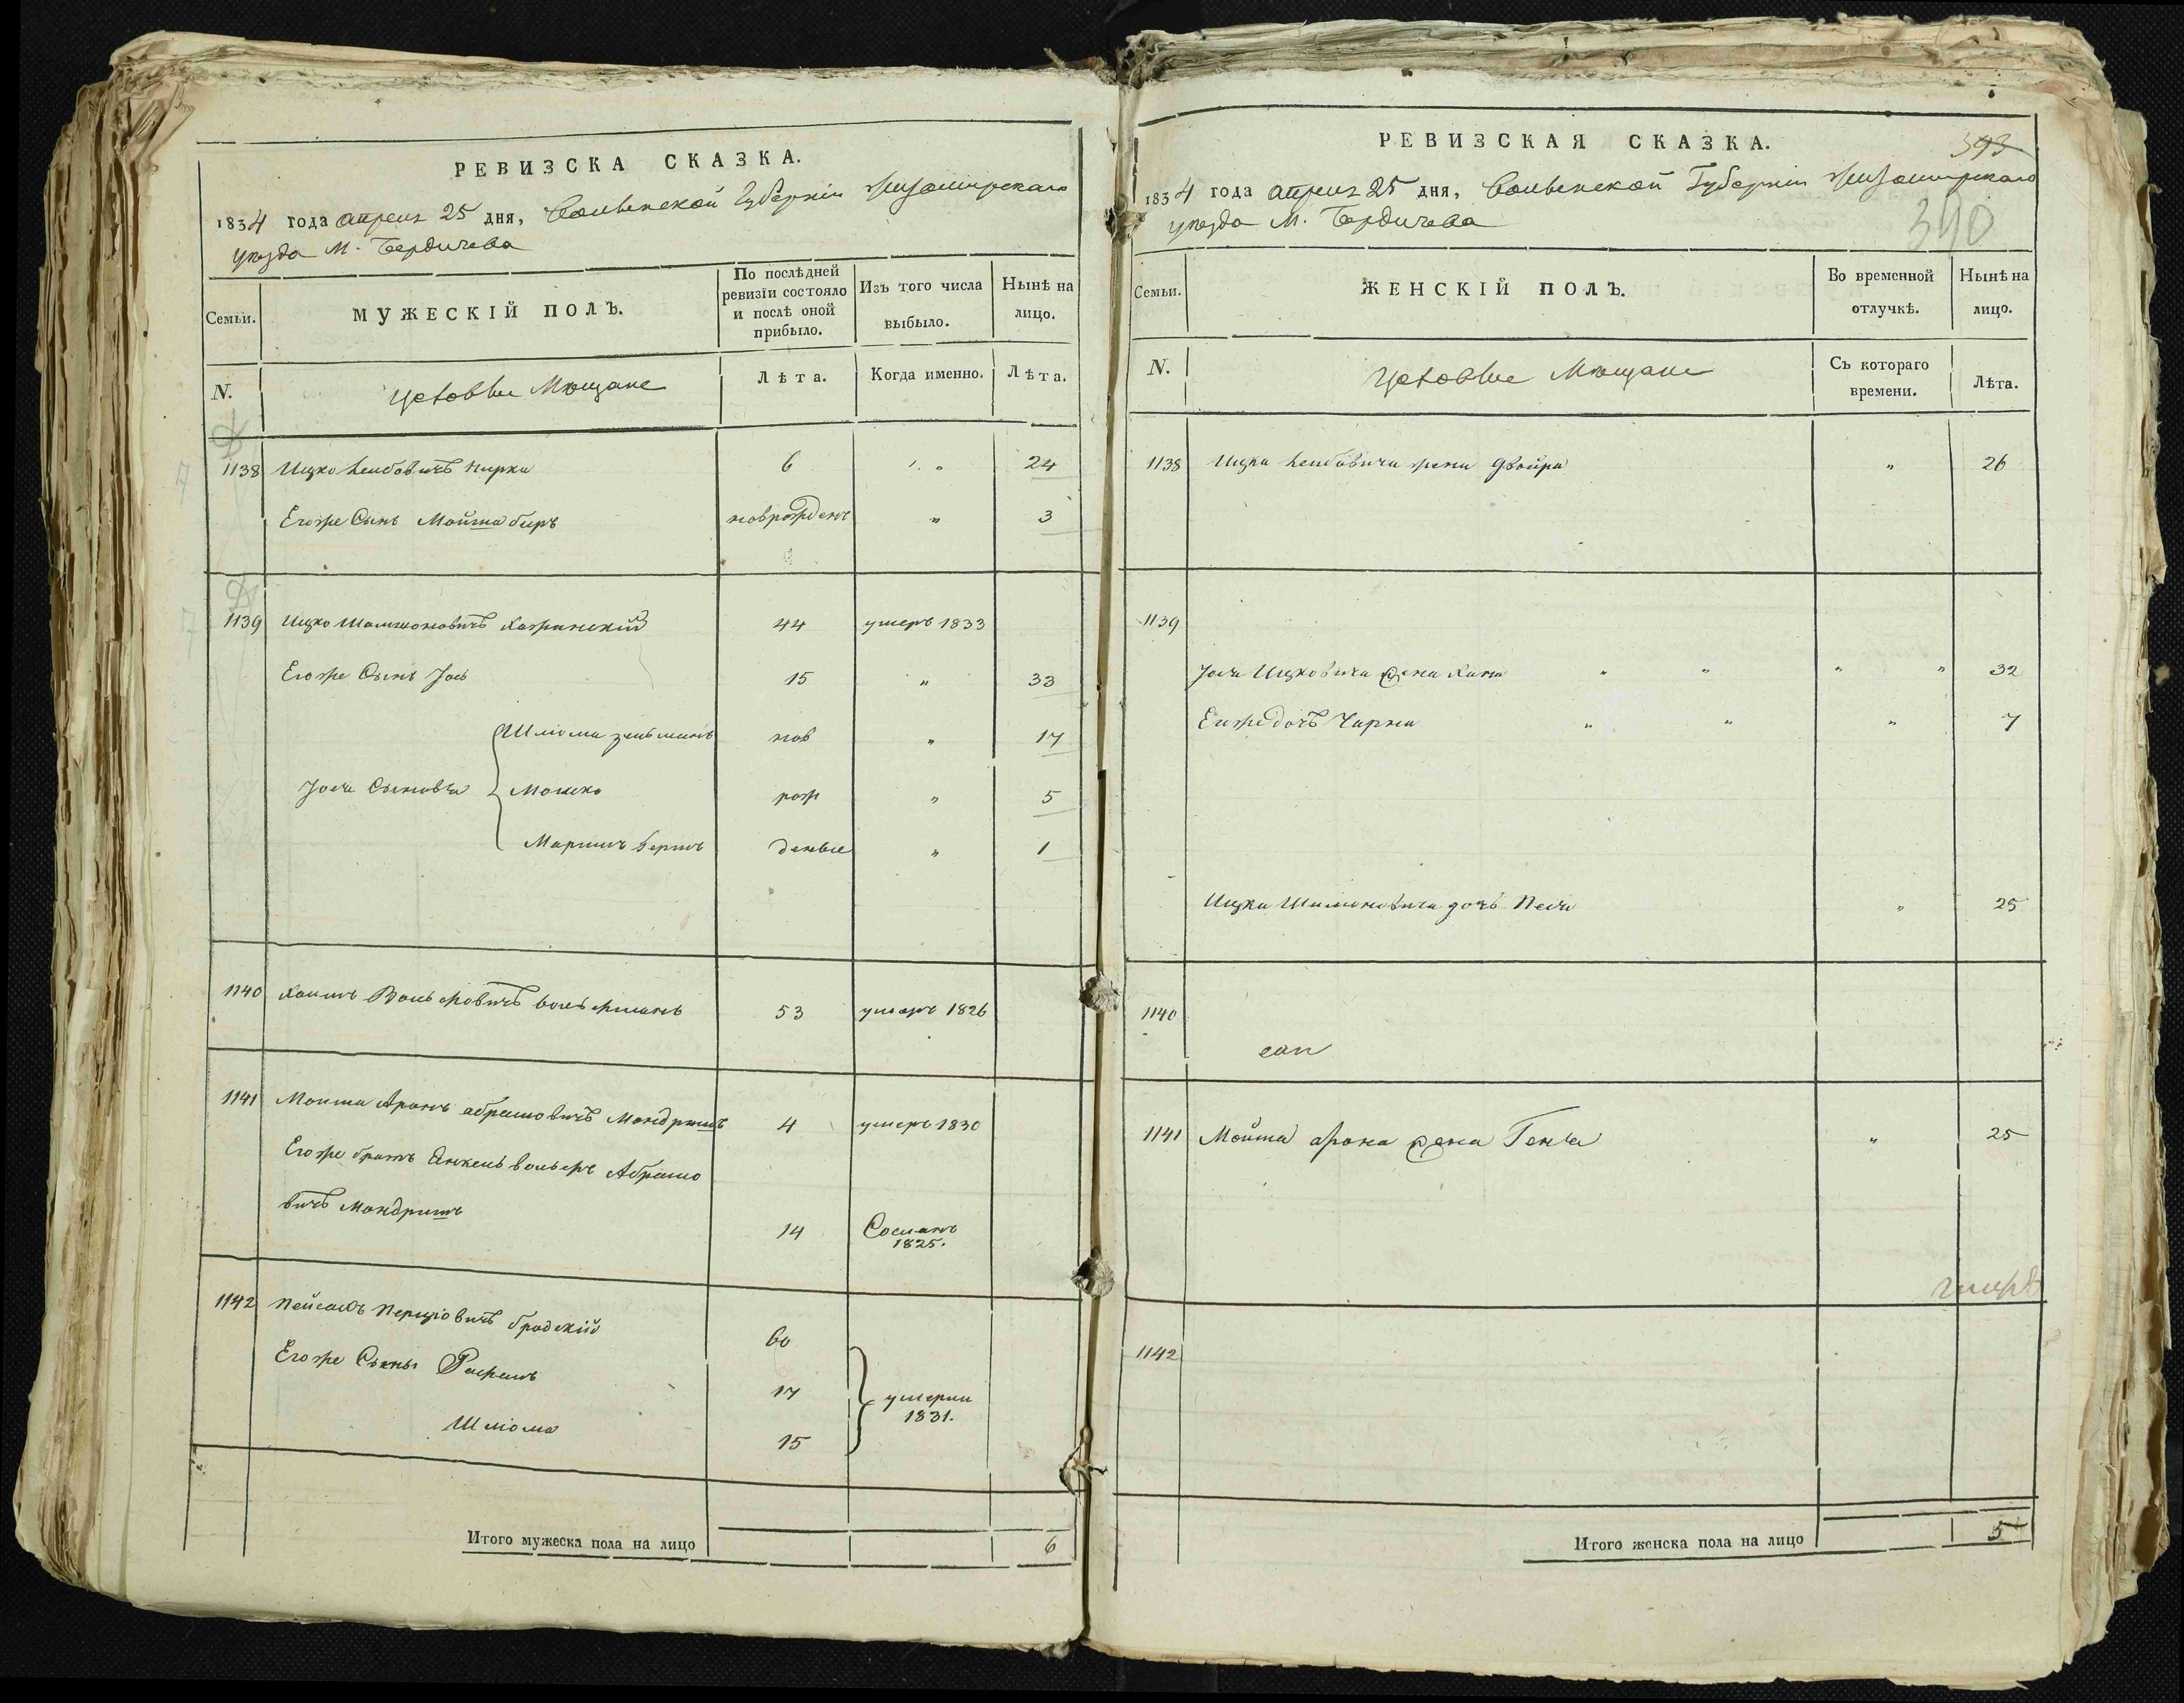 РЕВИЗСКА СКАЗКА.
1834 года апреля 25 дня, Волынской Губерніи Житомирскаго
уезда М. Бердичева
Семьи.
МУЖЕСКІЙ ПОЛЪ.
По послѣдней
ревизіи состояло
и послѣ оной
прибыло.
Изъ того числа
выбыло.
Нынѣ на
лицо.
N.
Мѣщане
Лѣта.
Когда именно.
Лѣта.
1138 Ицко Лейбовичъ Пирки 6 " 24
Егоже Сынъ Мойша беръ новрожденъ " 3
1139 Ицко Шамшоновичъ 44 умеръ 1833
Егоже Сынъ Іось 15 " 33
Шліома зельманъ нов " 17
Іося Сыновья Мошко рож " 5
Берко деные " 1
1140 Хаимъ Вольфовичъ вольфманъ 53 умеръ 1826
1141 Моиша Аронъ абрамовичъ Мондришъ 4 умеръ 1830
Егоже братъ Янкель вольфъ Абрамо
вичъ Мондришъ 14 Сосланъ
1825.
1142 Пейсахъ Перцовичъ бродскій 60
Егоже Сыны 17 умерли
1831.
Шліома 15
Итого мужеска пола на лицо 6
РЕВИЗСКАЯ СКАЗКА.
393
1834 года апреля 25 дня, Волынской Губерніи Житомирскаго
уезда М. Бердичева
390
Семьи.
ЖЕНСКІЙ ПОЛЪ.
Во временной
отлучкѣ.
Нынѣ на
лицо.
N.
Мѣщане
Съ котораго
времени.
Лѣта.
1138 Ицка Лейбовича жена Двойра " 26
1139
Іося Ицковича жена Хана " " " " 32
Еяже дочъ Чарна " " " 7
Ицка Шамшоновича дочъ Песя " 25
1140
1141 Мойша арона жена Генча " 25
1142
Итого женска пола на лицо 5